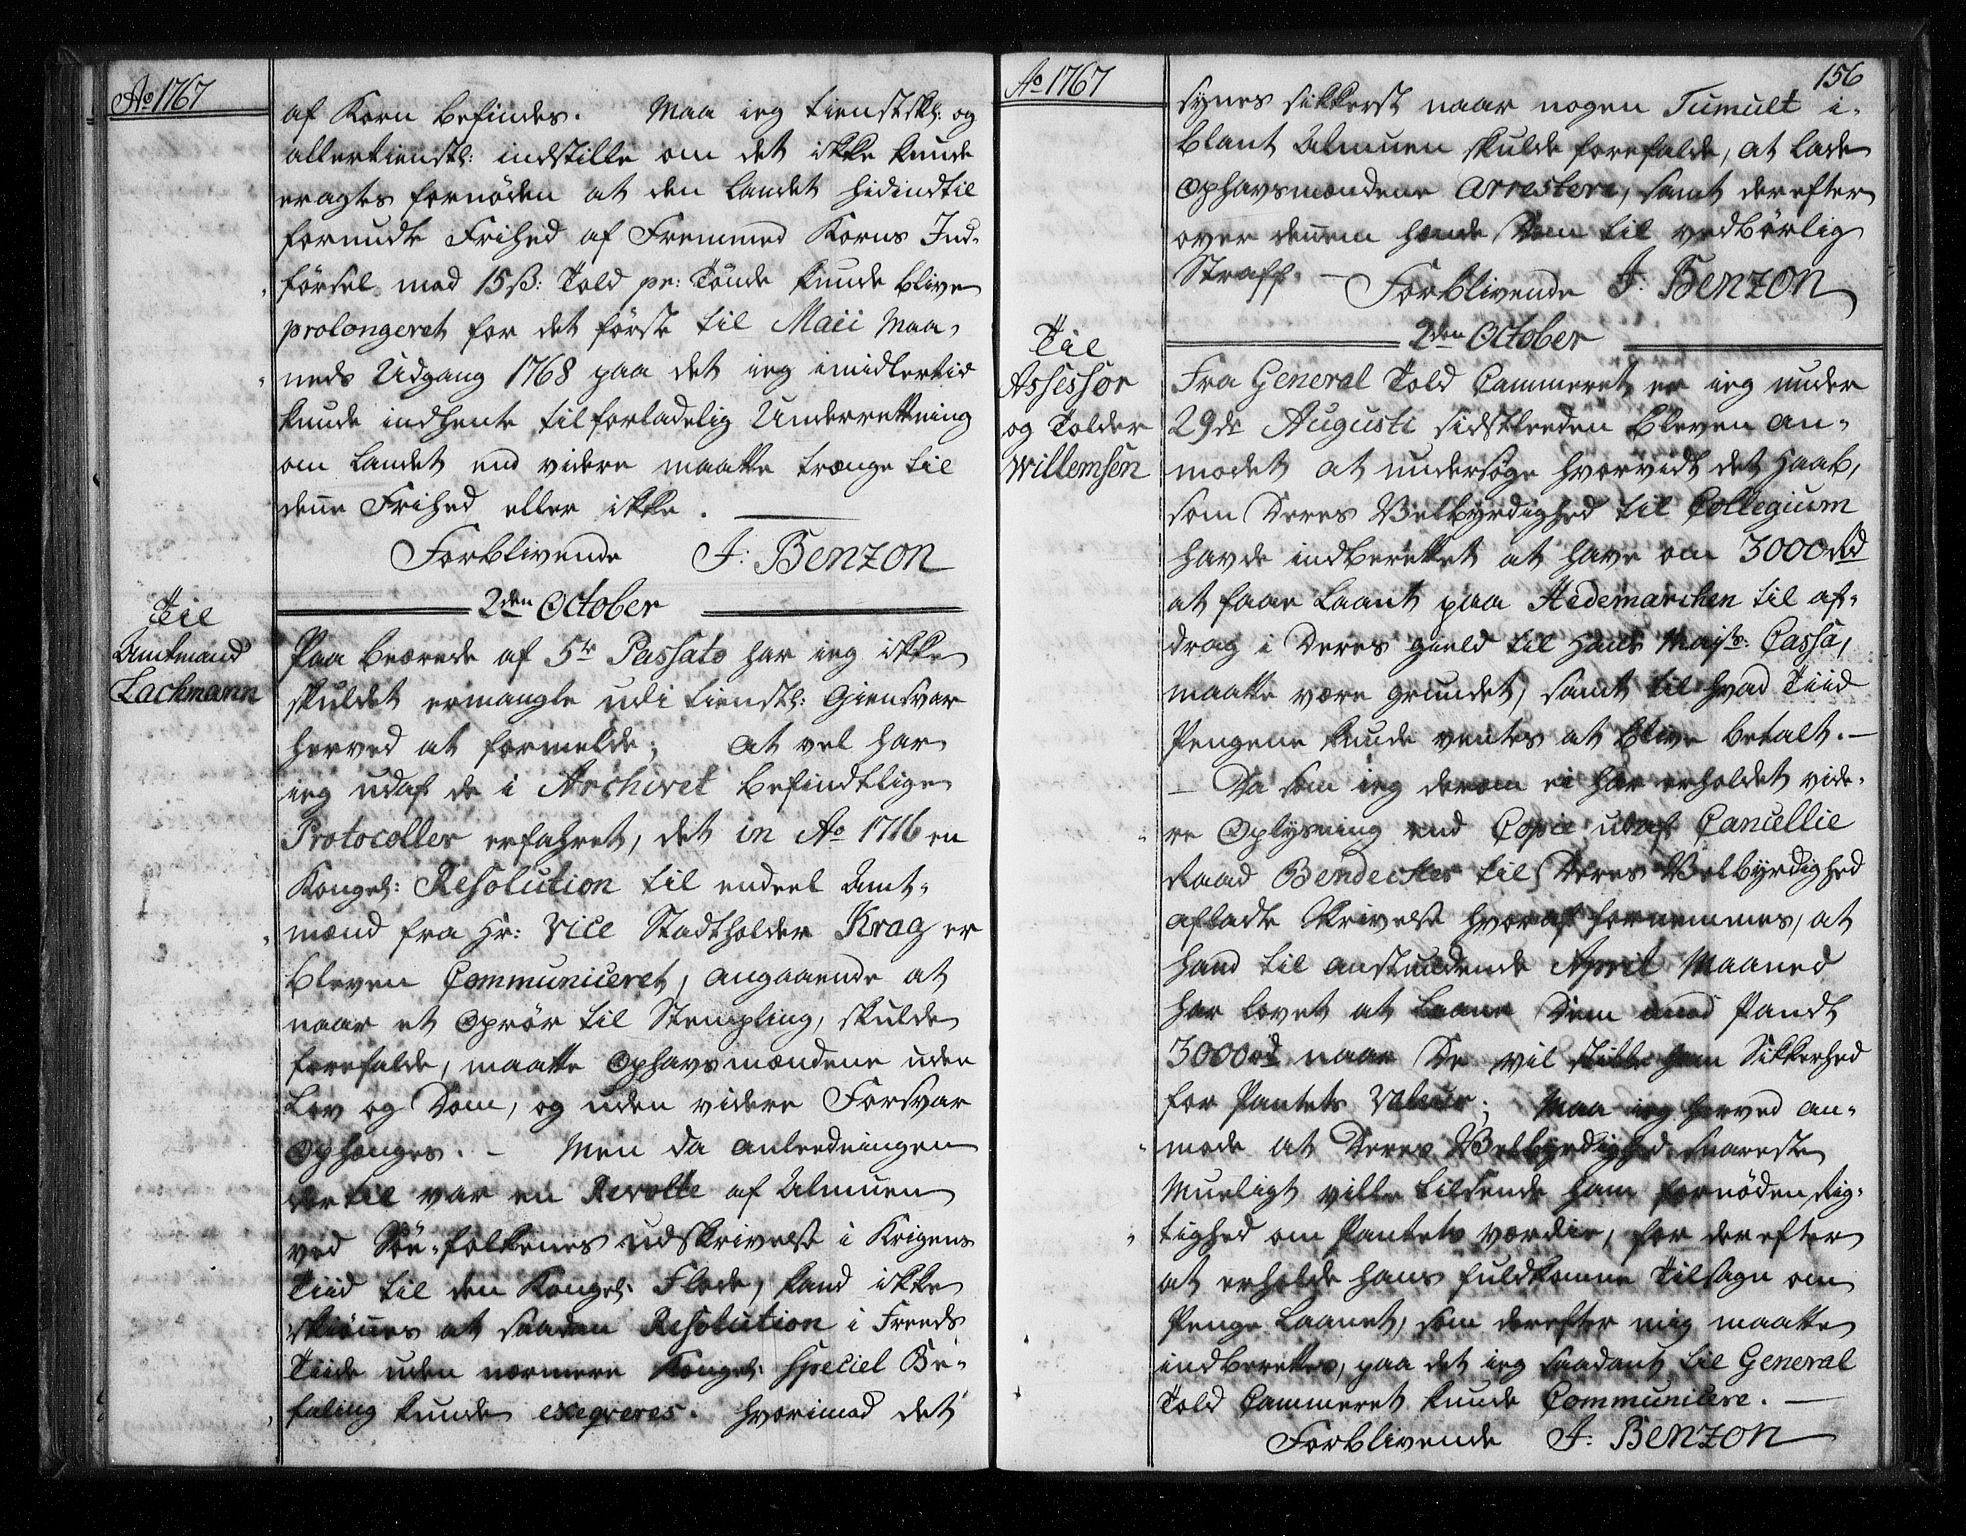 Ao 1767
af Korn befindes. Maa ieg tienstskl: og
allertienstl: indstille om det ikke kunde
eragtes fornöden at den Landet hidindtil
forundte Frihed af Fremmed Korns Ind-
försel med 15 ß: Told pr: Tönde kunde blive
prolongeret for det förste til Maii Maa-
neds Udgang 1768 paa det ieg imidlertid
kunde indhente tilforladelig Underrettning
om Landet end videre maatte trænge til
denne Frihed eller ikke.
Forblivende J: Benzon
2den October
Til
Amtmand
Lachmann
Paa beærede af 5te Passato har ieg ikke
skuldet ermangle udi tienstl: Giensvar
herved at formelde; At vel har
ieg udaf de i Archivet befindtlige
Protocoller erfahret, det in Ao 1716 en
Kongel: Resolution til endeel Amt-
mænd fra Hr: Vice Stadtholder Krag er
bleven Communiceret, angaaende at
naar et Oprör til Stempling, skulde
forefalde, maatte Ophavsmændene uden
Lov og Dom, og uden videre Forsvar
Ophænges. - Men da anleedningen
dertil var en Revolte af Almuen
ved Söe-folkenes udskrivelse i Krigens
Tiid til den Kongel: Flode, kand ikke
skiönnes at saadan Resolution i Freeds
Tiide uden nærmere Kongel: Speciel Be-
faling kunde exeqveres. Hvorimod det
Ao 1767
156
synes sikkerst naar nogen Tumult i-
blant Almuen skulde forefalde, at lade
Ophavsmændene Arrestere, samt derefter
over dennem hænde Dom til vedbörlig
Straff. - Forblivende J: Benzon
2den October
Til
Assessor
og Tolder
Willemsen
Fra General Told Cammeret er ieg under
29de Augusti sidstleeden bleven an-
modet at undersöge hvorvidt det Haab,
som Deres Velbyrdighed til Collegium
havde indberettet at have om 3000 Rd
at faae Laant paa Hedemarchen til af-
drag i Deres gield til Hans Majts: Cassa,
maatte være grundet, samt til hvad Tiid
Pengene kunde ventes at blive betalt. -
- Da som ieg derom ei har erholdet vide-
re Oplysning end Copie udaf Cancellie
Raad Bendeches til Deres Velbyrdighed
afladte Skrivelse hvoraf fornemmes, at
hand til anstundende April Maaned
har lovet at Laane Dem mod Pandt
3000 rd naar De vil stille ham Sikkerhed
for Pantets Valeur; Maa ieg herved an-
mode at Deres Velbyrdighed snareste
Mueligt ville tilsende ham fornöden Rig-
tighed om Pantets værdie, for derefter
at erholde hans fuldkomne Tilsagn om
Penge Laanet, som derefter mig maatte
indberettes, paa det ieg saadant til General
Told Cammeret kunde Communicere. -
Forblivende J: Benzon